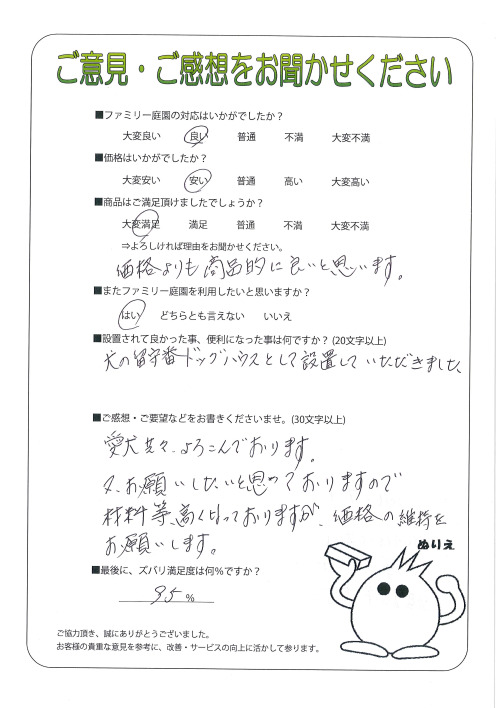 ご意見・ご感想をお聞かせください
■ファミリー庭園の対応はいかがでしたか？
大変良い 良い 普通 不満 大変不満
■価格はいかがでしたか？
大変安い 安い 普通 高い 大変高い
■商品はご満足頂けましたでしょうか？
大変満足 満足 普通 不満 大変不満
⇒よろしければ理由をお聞かせください。
価格よりも商品的に良いと思います。
■またファミリー庭園を利用したいと思いますか？
はい どちらとも言えない いいえ
■設置されて良かった事、便利になった事は何ですか？(20文字以上)
犬の留守番ドッグハウスとして設置していただきました
■ご感想・ご要望などをお書きくださいませ。(30文字以上)
愛犬共々、よろこんでおります。
又、お願いしたいと思っておりますので
材料等高くなっておりますが、価格への維持を
お願いします。
ぬりえ
■最後に、ズバリ満足度は何％ですか？
95 ％
ご協力頂き、誠にありがとうございました。
お客様の貴重な意見を参考に、改善・サービスの向上に活かして参ります。